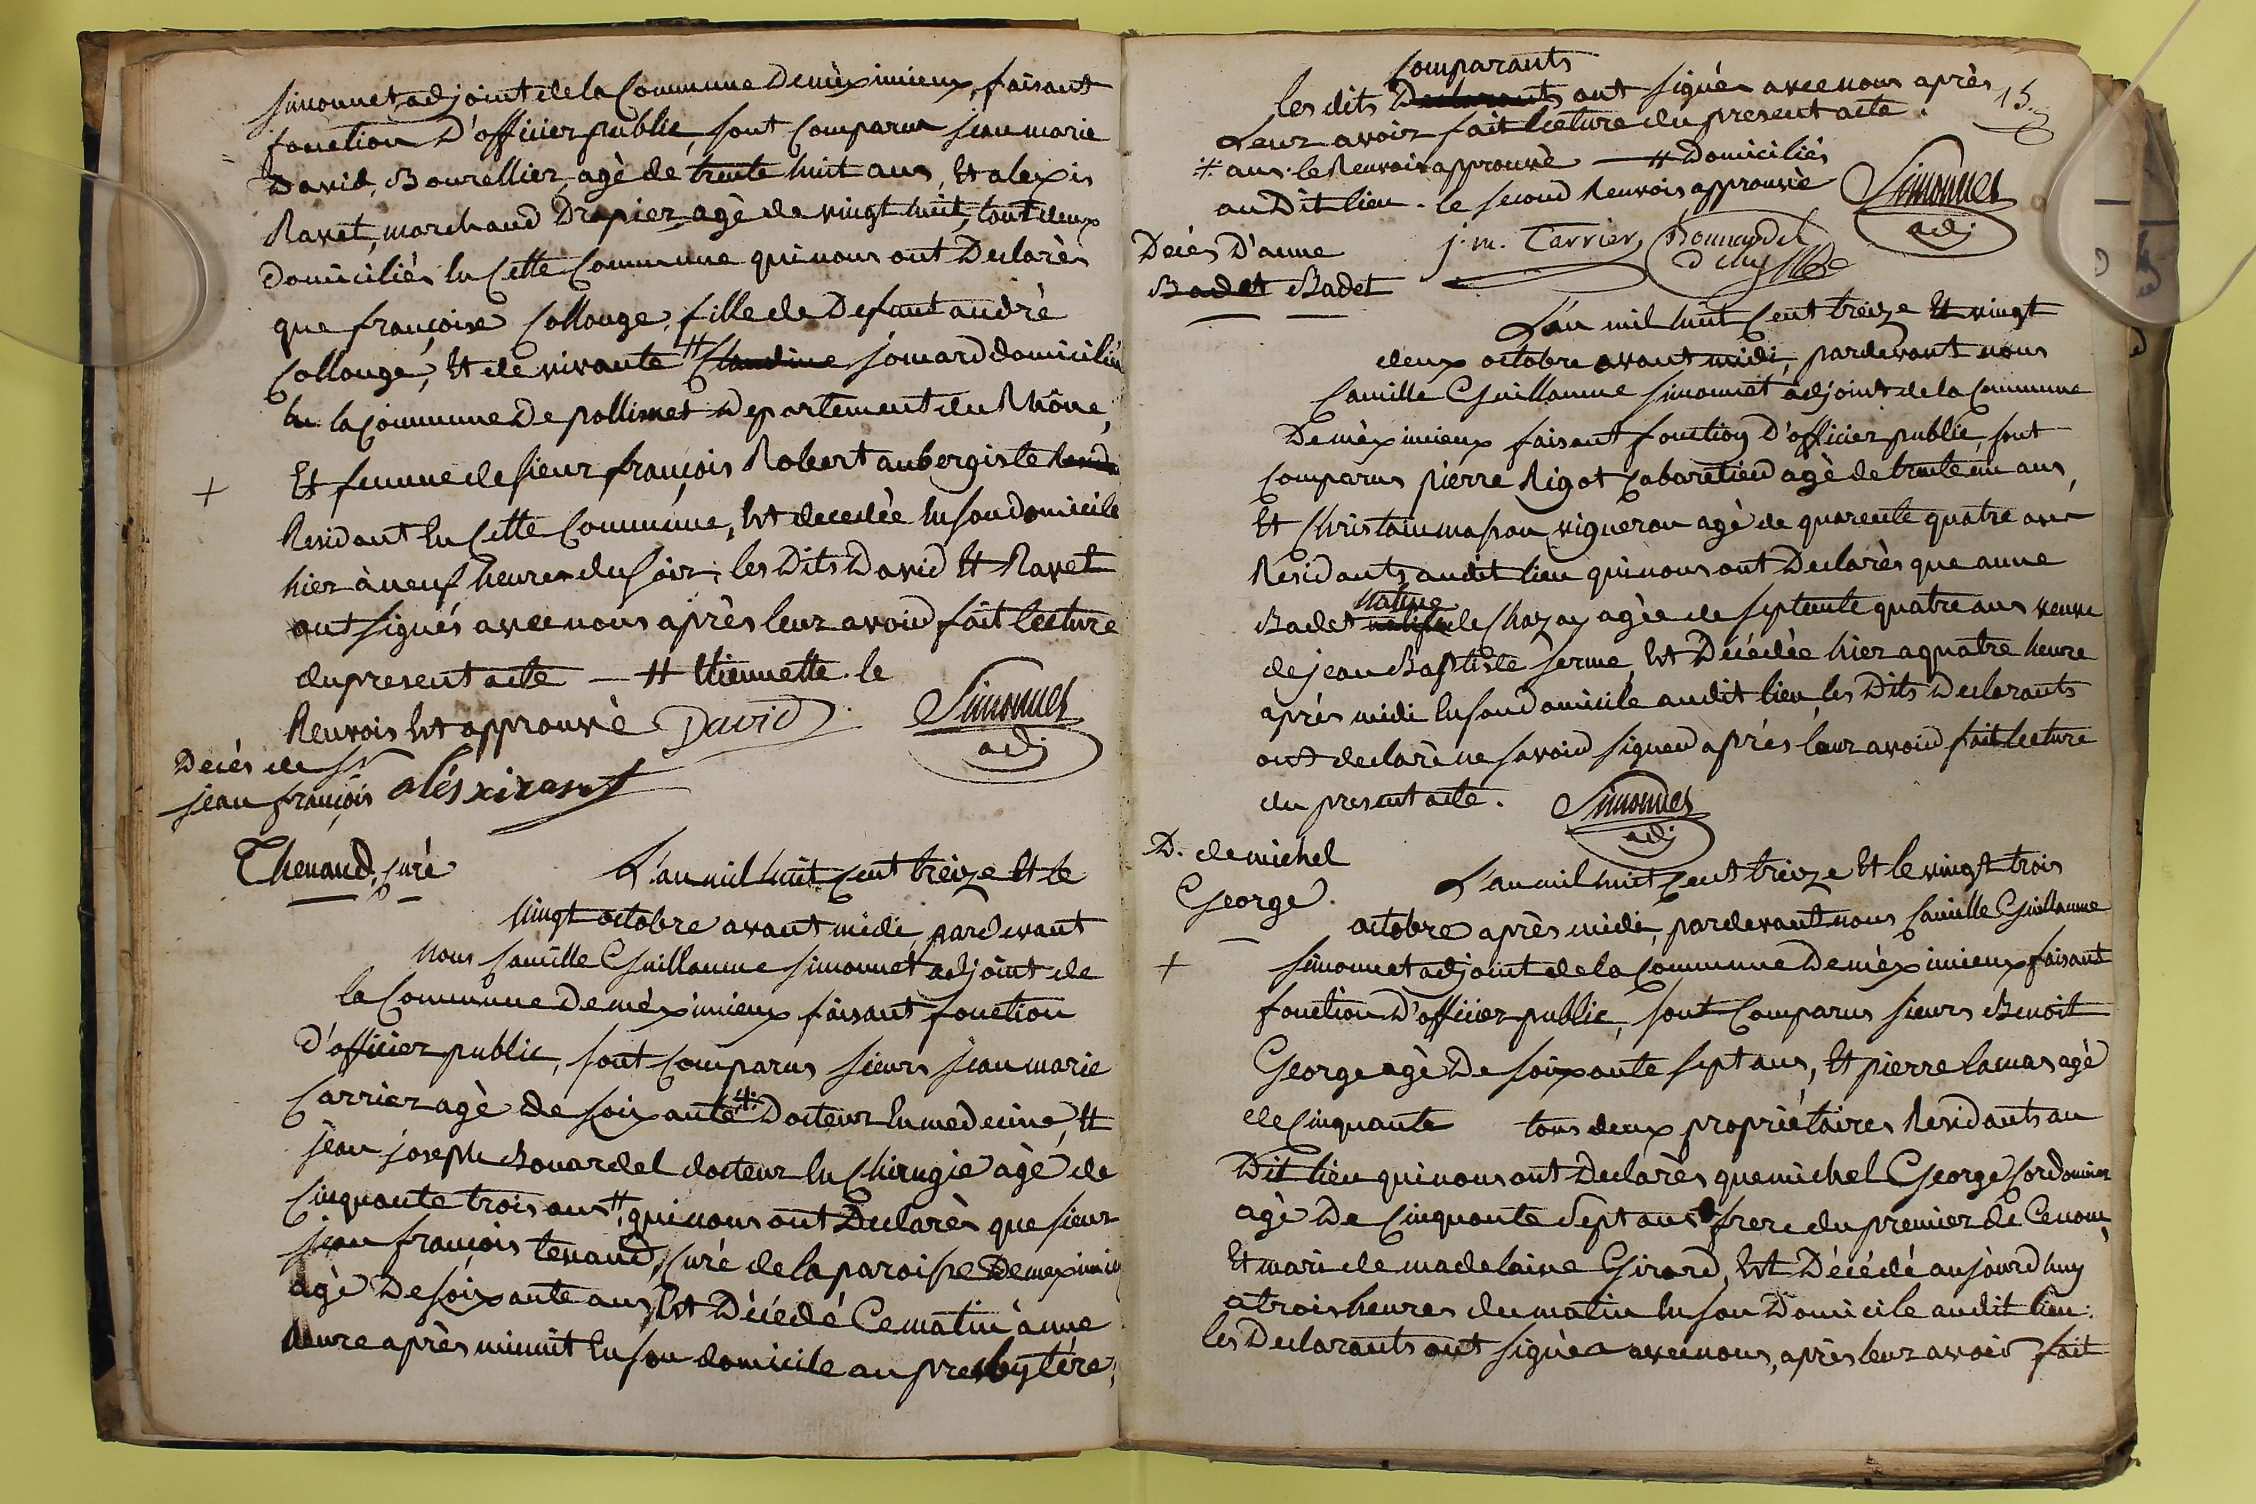 Simonnet, adjoint de la Commune De mèximieux, faisant
fonction D'officier public, sont Comparus jean marie
David, Bourellier, agè de trente huit ans, Et alexis
Ravet, marchand Drapier, agè de vingt huit, tout deux
domiciliés En Cette Commune qui nous ont Declarès
que françoise Collonge, fille de Defunt andrè
Collonge, Et de vivante # Claudine Jomard domiciliés
En la Commune De pollimet Departement du Rhône,
+ Et femme de sieur françois Robert aubergiste
Residant En Cette Commune, Est decedèe En son domicile
hier à neuf heures du soir; les Dits David Et Ravet
ont signés avec nous après leur avoir fait lecture
du present acte — # Etiennette. le
Renvois Est approuvè David Simonnet adj
Decés de Sr
jean françois aléxi ravet
Thenaud, curè
L'an mil huit Cent treize Et le
vingt octobre avant midi, pardevant
nous Camille Guillaume Simonnet adjoint de
la Commune De mèximieux faisant fonction
D'officier public, sont Comparus sieurs jean marie
Carrier agè de soixante # Docteur En medecine, Et
jean joseph Bonardel docteur En Chirugie agè de
Cinquante trois ans #, qui nous ont Declarès que sieur
jean françois tenaud, Curé de la paroisse De meximieux
agè De soixante ans, Est Dècédé Ce matin à une
heure après minuit En son domicile au presbytére;
Comparants
les dits Declarants ont signés avec nous après 15.
Leur avoir fait lecture du present acte.
# ans. le Renvois approuvè — # Domiciliés
au Dit lieu. le second Renvois approuvè Simonnet adj
j. m. Carrier Bonnardel
Decés D'anne
Badet Badet
L'an mil huit Cent treize Et vingt
deux octobre avant midi, pardevant nous
Camille Guillaume Simonnet adjoint de la Commune
De mèximieux faisant fonction D'officier public, sont
Comparus pierre Rigot Cabaretier agè de trente un ans,
Et Christain masson vigneron agè de quarente quatre ans
Residants audit lieu qui nous ont Declarès que anne
Native
Badet de Chazay agèe de septente quatre ans veuve
de jean Baptiste serme, Est Décédèe hier a quatre heure
aprés midi En son domicile audit lieu, les Dits Declarants
ont declarè ne savoir signer aprés leur avoir fait lecture
du present acte. Simonnet adj
D. de michel
George.
+
L'an mil huit Cent treize Et le vingt trois
octobre après midi, pardevant nous Camille Guillaume
Simonnet adjoint de la Commune De mèximieux faisant
fonction D'officier public, sont Comparus sieurs Benoit
George agè De soixante sept ans, Et pierre lamas agè
de Cinquante tous deux propriétaires Residants au
Dit lieu qui nous ont Declarès que michel George Cordonnier
agè De Cinquante Sept ans frere du premier de Ce nom,
Et mari de madelaine Girard, Est Décédé aujourd huy
a trois heures du matin En son Domicile audit lieu.
les Declarants ont signés avec nous, après leur avoir fait